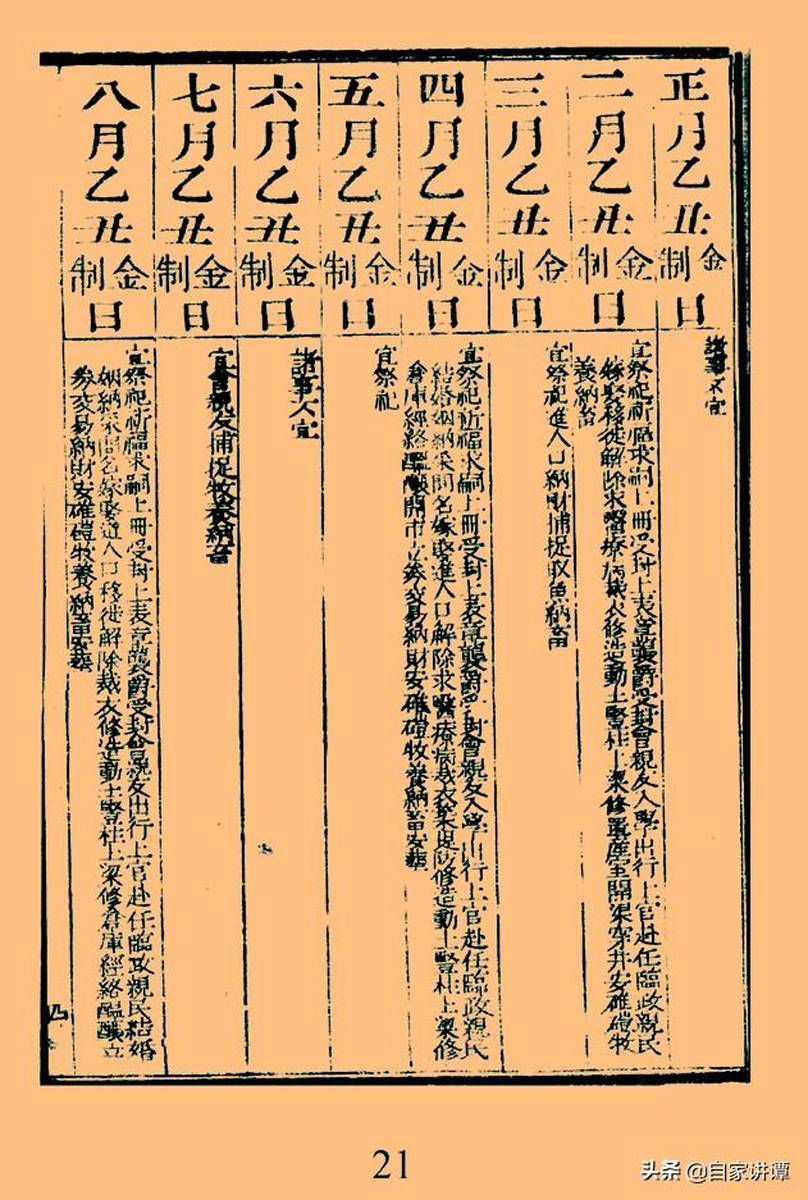 正月乙丑
金
制
日
諸事不宜
二月乙丑
金
制
日
宜祭祀祈福求嗣上冊受封上表章襲爵受封會親友入學出行上官赴任臨政親民
嫁娶移徙解除求醫療病裁衣修造動土豎柱上梁修置產室開渠穿井安碓磑牧
養納畜
三月乙丑
金
制
日
宜祭祀進人口納財捕捉取魚納畜
四月乙丑
金
制
日
宜祭祀祈福求嗣上冊受封上表章襲爵受封會親友入學出行上官赴任臨政親民
結婚姻納采問名嫁娶進人口解除求醫療病裁衣築隄防修造動土豎柱上梁修
倉庫經絡醞釀開市立券交易納財安碓磑牧養納畜安葬
五月乙丑
金
制
日
宜祭祀
六月乙丑
金
制
日
諸事不宜
七月乙丑
金
制
日
宜會親友捕捉牧養納畜
八月乙丑
金
制
日
宜祭祀祈福求嗣上冊受封上表章襲爵受封會親友出行上官赴任臨政親民結婚
姻納采問名嫁娶進人口移徙解除裁衣修造動土豎柱上梁修倉庫經絡醞釀立
券交易納財安碓磑牧養納畜安葬
21
头条 @自家讲谭